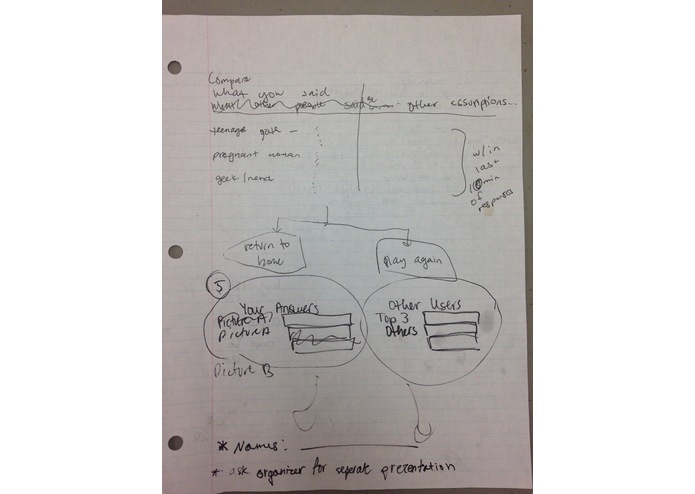 Compare
What you said
other assumptions...
teenage goth -
pregnant woman
geek/nerd
w/in
last
10 min
of
responses
return to
base
play again
5
Your Answers
Picture A
Picture A
Picture B
Other Users
Top 3
Others
* Names:
* ask organizer for seperate presentation